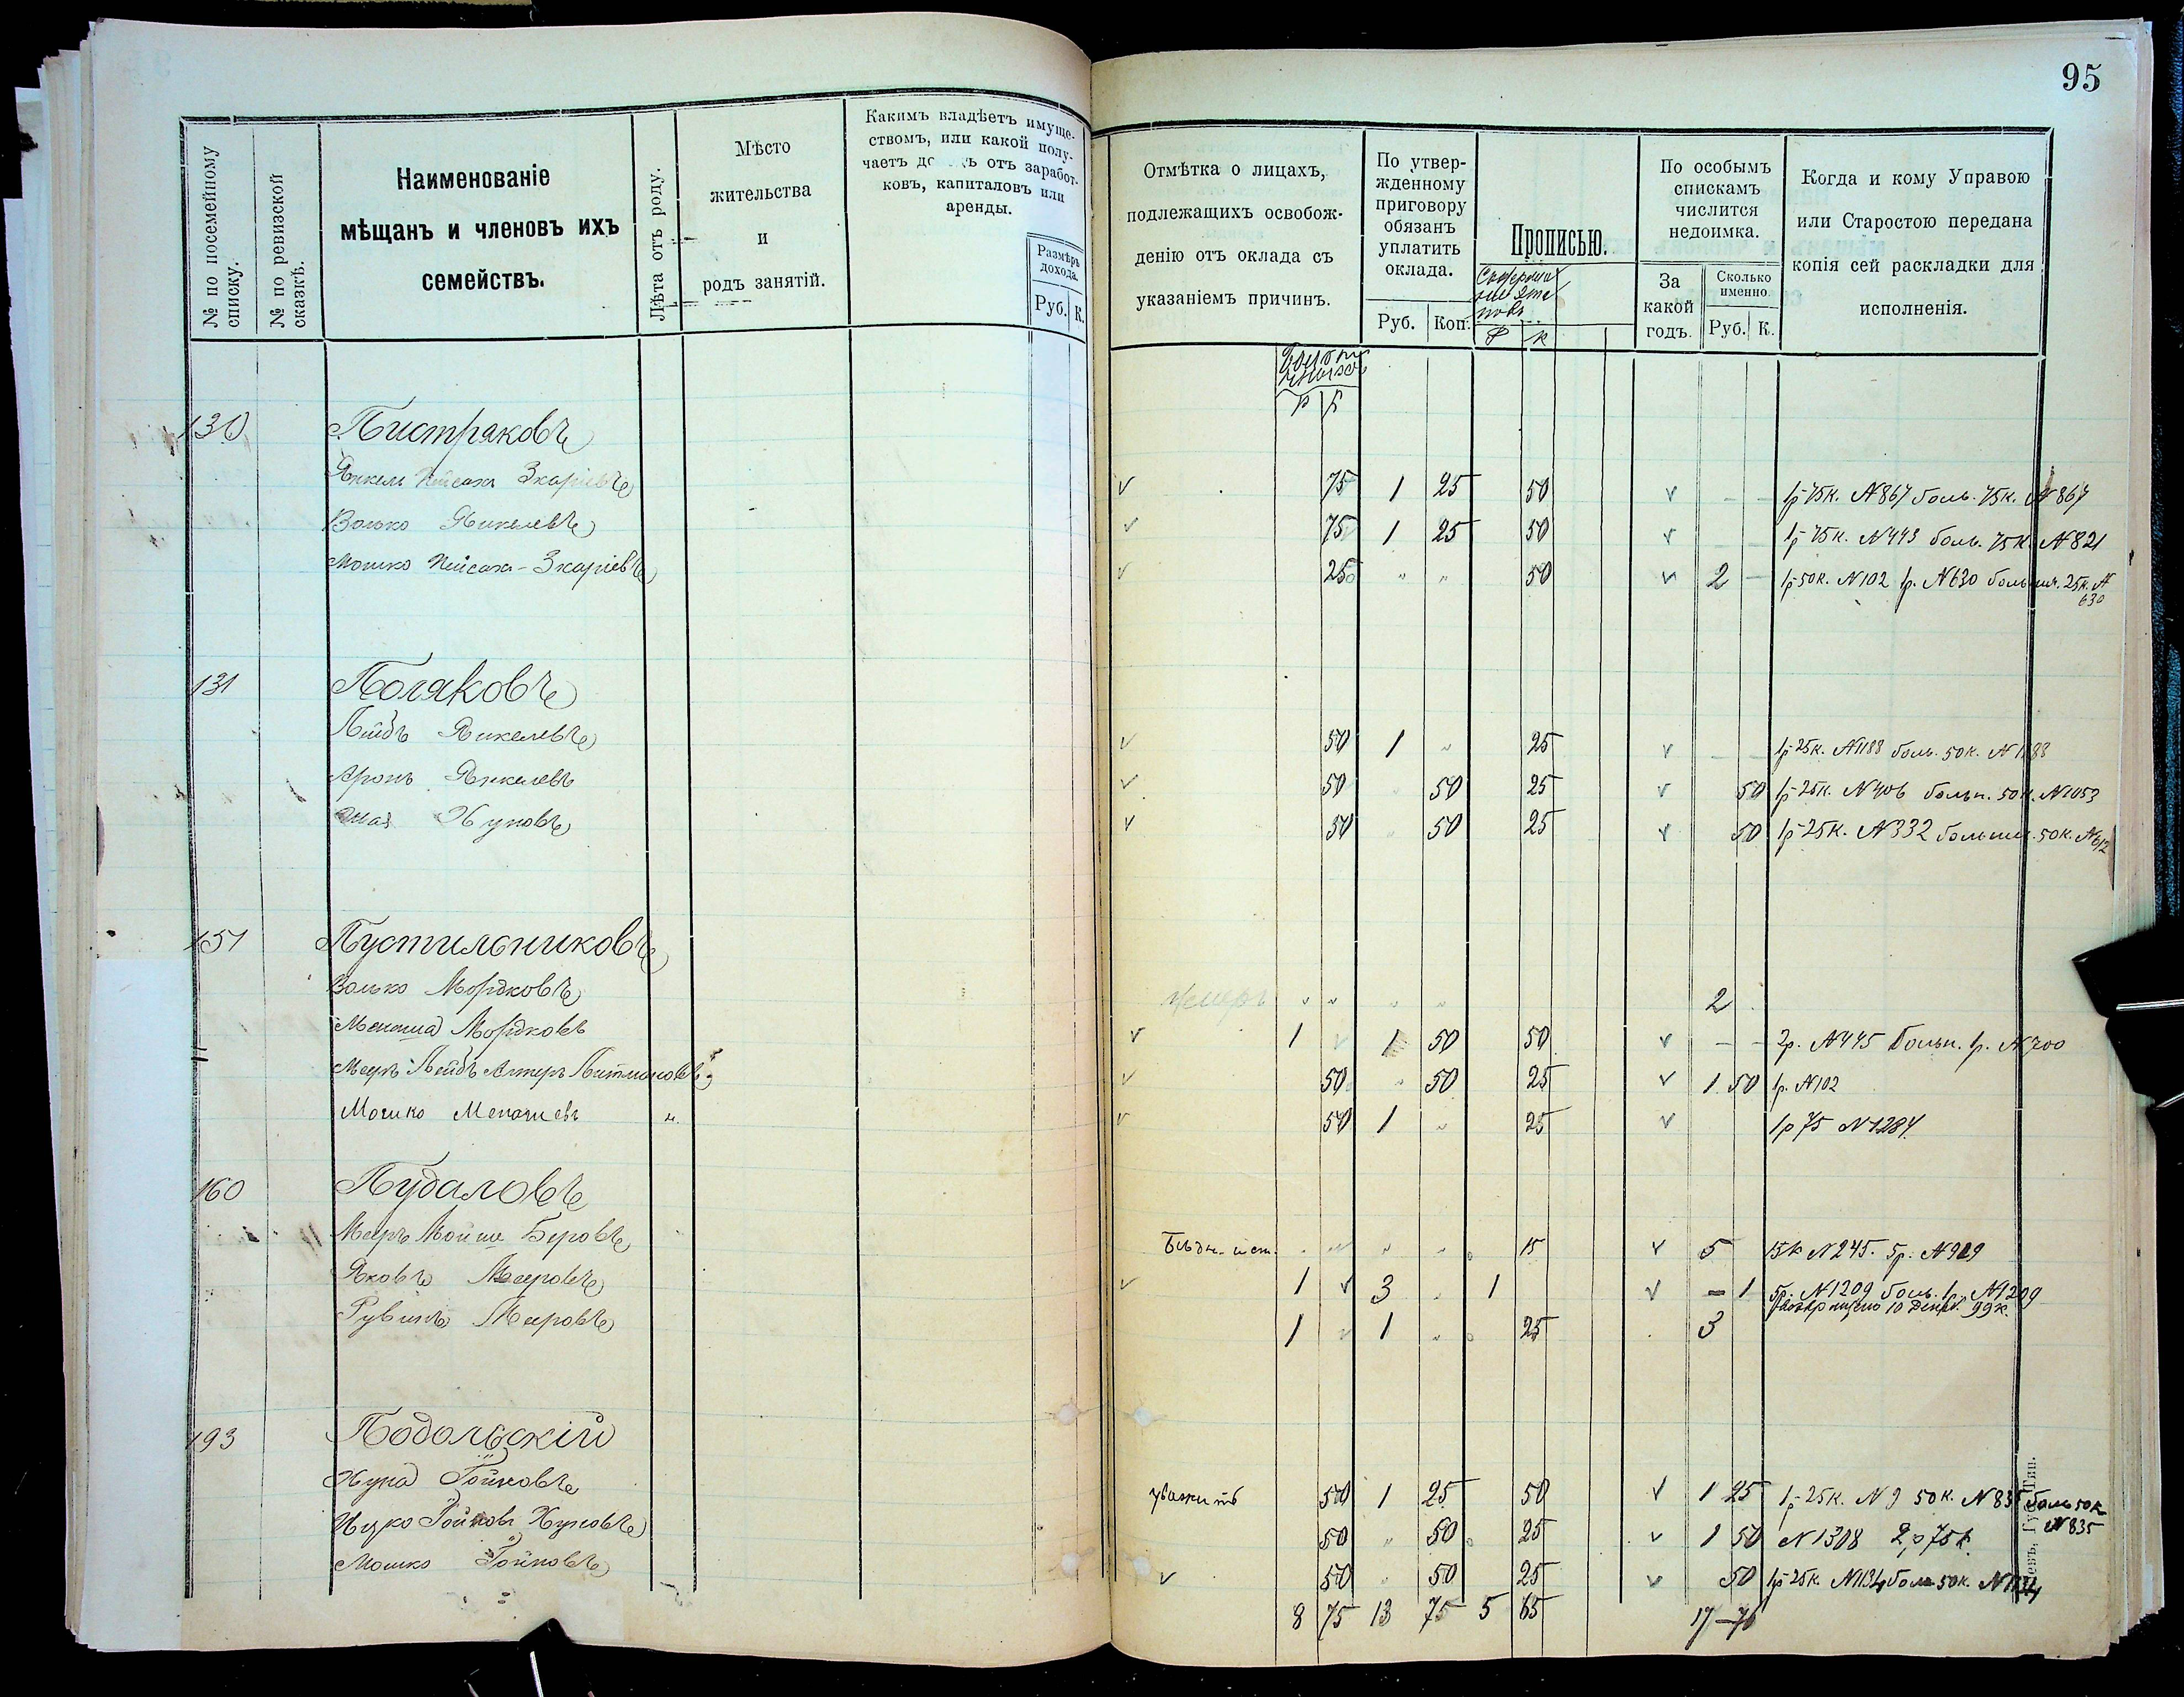 95
№ по посемейному списку.
№ по ревизской сказкѣ.
Наименованіе
мѣщанъ и членовъ ихъ
семействъ.
Лѣта отъ роду.
Мѣсто
жительства
и
родъ занятій.
Какимъ владѣетъ имуще-
ствомъ, или какой полу-
чаетъ до ъ отъ заработ-
ковъ, капиталовъ или
аренды.
Размѣръ
дохода.
Руб. К.
Отмѣтка о лицахъ,
подлежащихъ освобож-
денію отъ оклада съ
указаніемъ причинъ.
По утвер-
жденному
приговору
обязанъ
уплатить
оклада.
Руб. Коп.
Прописью.
Р К
По особымъ
спискамъ
числится
недоимка.
За
какой
годъ.
Сколько
именно.
Руб. К.
Когда и кому Управою
или Старостою передана
копія сей раскладки для
исполненія.
Р К
130 Пистряковъ
Янкель Пейсахъ Зкаріевъ 75 1 25 50 1р-75к. №867 боль. 75к. №867
Волько Янкелевъ 75 1 25 50 1р-75к. №443 боль. 75к. №821
Мошко Пейсахъ-Зкаріевъ 25 " " 50 2 1р-50к. №102 1р. №630 25к. №
630
131 Поляковъ
Лейбъ Янкелевъ 50 1 " 25 1р-25к. №1188 боль. 50к. №1188
Аронъ Янкелевъ 50 50 25 50 1р-25к. №406 больн. 50к. №1053
Хуновъ 50 50 25 50 1р-25к. №332 50к. №612
151 Пустильниковъ
Волько Мордковъ " " " " 2
Менаша Мордковъ 1 1 50 50 2р. №445 больн. 1р. №700
Мееръ Лейбъ Алтеръ 50 " 50 25 1 50 1р. №102
Мошко Менашевъ 50 1 " 25 1р 75 №1284
160 Пудаловъ
Мееръ Мойше Беровъ 15 5 15к №245. 5р. №929
Яковъ Мееровъ 1 3 1 1 5р. №1209 боль. 1р. №1209
10 Декаб. 99к.
Рувинъ Мееровъ 1 1 " 25 3
193 Подольскій
Хуна Гойновъ 50 1 25 50 1 25 1р-25к. №9 50к. №835 боль 50к
№835
Ицко Гойновъ Хуновъ 50 " 50 25 1 50 №1308 2р75к.
Мошко Гойновъ 50 50 25 50 1р-25к. №1134 боль 50к. №1134
8 75 13 75 5 65 17-76